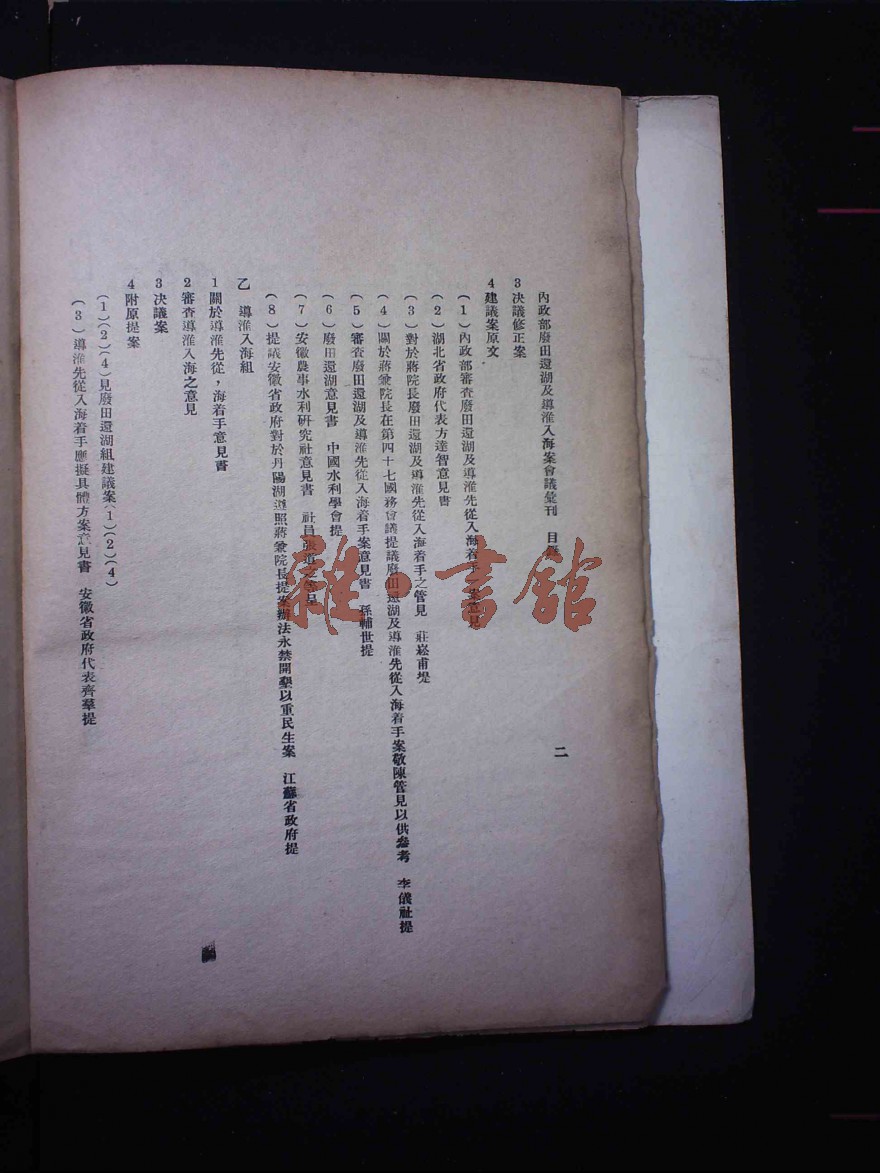 內政部廢田還湖及導淮入海案會議彙刊 目錄
二
3 決議修正案
4 建議案原文
(1) 內政部審查廢田還湖及導淮先從入海着手案意見
(2) 湖北省政府代表方達智意見書
(3) 對於蔣院長廢田還湖及導淮先從入海着手之管見 莊崧甫提
(4) 關於蔣兼院長在第四十七國務會議提議廢田還湖及導淮先從入海着手案敬陳管見以供參考 李儀祉提
(5) 審查廢田還湖及導淮先從入海着手案意見書 孫輔世提
(6) 廢田還湖意見書 中國水利學會提
(7) 安徽農事水利研究社意見書 社員張
(8) 提議安徽省政府對於丹陽湖遵照蔣兼院長提案辦法永禁開墾以重民生案 江蘇省政府提
乙 導淮入海組
1 關於導淮先從,海着手意見書
2 審查導淮入海之意見
3 決議案
4 附原提案
(1)(2)(4)見廢田還湖組建議案(1)(2)(4)
(3) 導淮先從入海着手應擬具體方案意見書 安徽省政府代表齊羣提
雜·書館